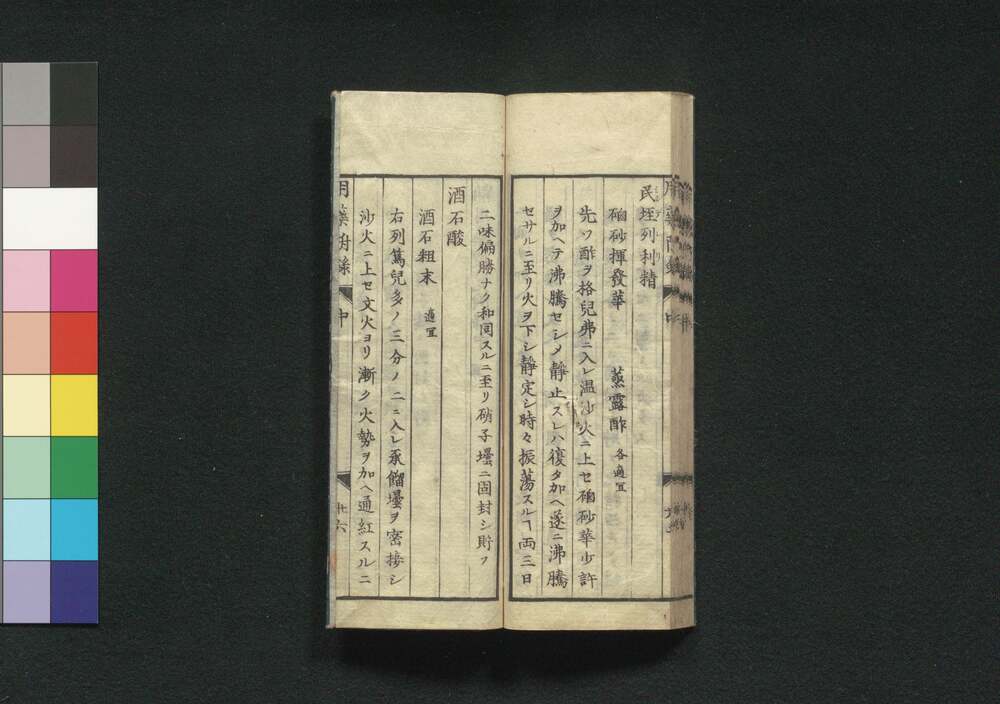 民垤列利精
硇砂揮發華　蒸露酢　各適宜
先ツ酢ヲ格兒弗ニ入レ温沙火ニ上セ硇砂華少許
ヲ加ヘテ沸騰セシメ静止スレハ復タ加ヘ遂ニ沸騰
セサルニ至リ火ヲ下シ静定シ時々振蕩スルヿ両三日
二味偏勝ナク和同スルニ至リ硝子壜ニ固封シ貯フ
酒石酸
酒石粗末　適宜
右列篤兒多ノ三分ノ二ニ入レ承餾壜ヲ密接シ
沙火ニ上セ文火ヨリ漸ク火勢ヲ加ヘ通紅スルニ
中
廿六